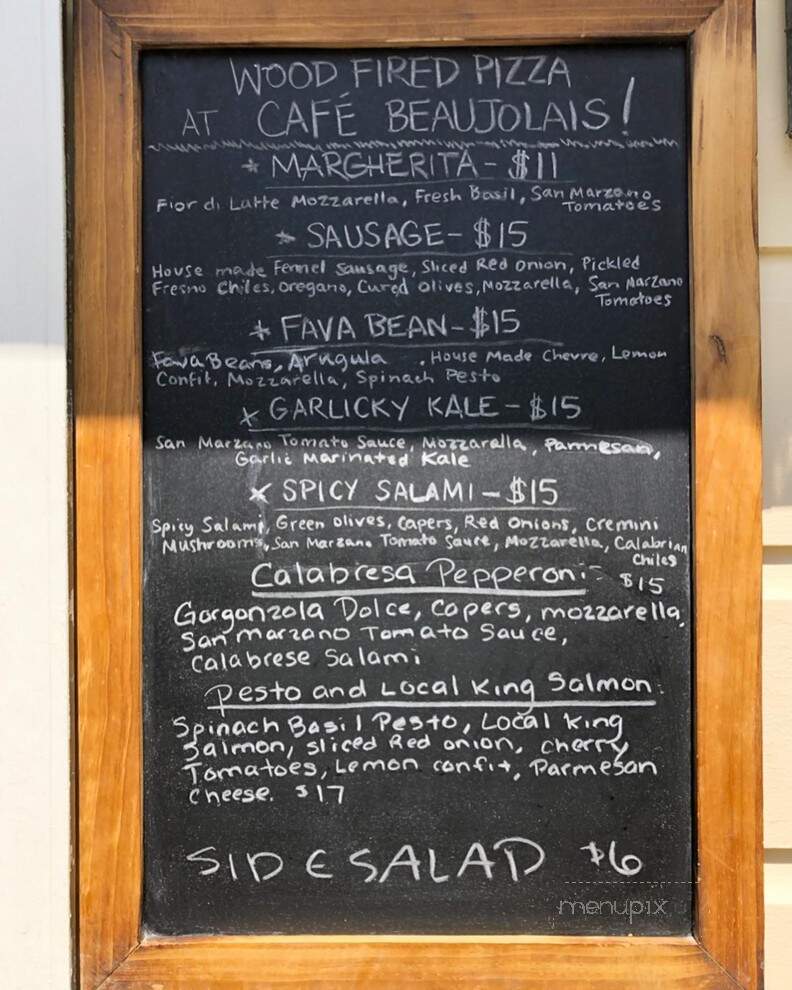 WOOD FIRED PIZZA
AT CAFÉ BEAUJOLAIS!
* MARGHERITA - $11
Fior di Latte Mozzarella, Fresh Basil, San Marzano
Tomatoes
* SAUSAGE - $15
House made Fennel Sausage, Sliced Red Onion, Pickled
Fresno Chiles, Oregano, Cured Olives, Mozzarella, San Marzano
Tomatoes
* FAVA BEAN - $15
Fava Beans, Arugula , House Made Chevre, Lemon
Confit, Mozzarella, Spinach Pesto
* GARLICKY KALE - $15
San Marzano Tomato Sauce, Mozzarella, Parmesan,
Garlic Marinated Kale
* SPICY SALAMI - $15
Spicy Salami, Green Olives, Capers, Red Onions, Cremini
Mushrooms, San Marzano Tomato Sauce, Mozzarella, Calabrian
Chiles
Calabresa Pepperoni - $15
Gorgonzola Dolce, Capers, mozzarella,
San marzano Tomato Sauce,
Calabrese Salami
Pesto and Local King Salmon.
Spinach Basil Pesto, Local King
Salmon, sliced Red onion, cherry
Tomatoes, Lemon confit, Parmesan
Cheese. $17
SIDE SALAD $6
menupix